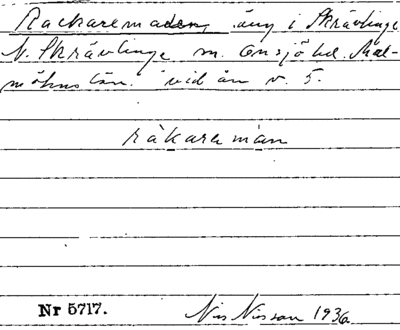 Rackaremaden, äng i Skrävlinge
V. Skrävlinge sn. Onsjö hd. Mal-
möhus län. vid ån v. 5.
råkaremàn
Nr 5717.
Nis Nisson 1936